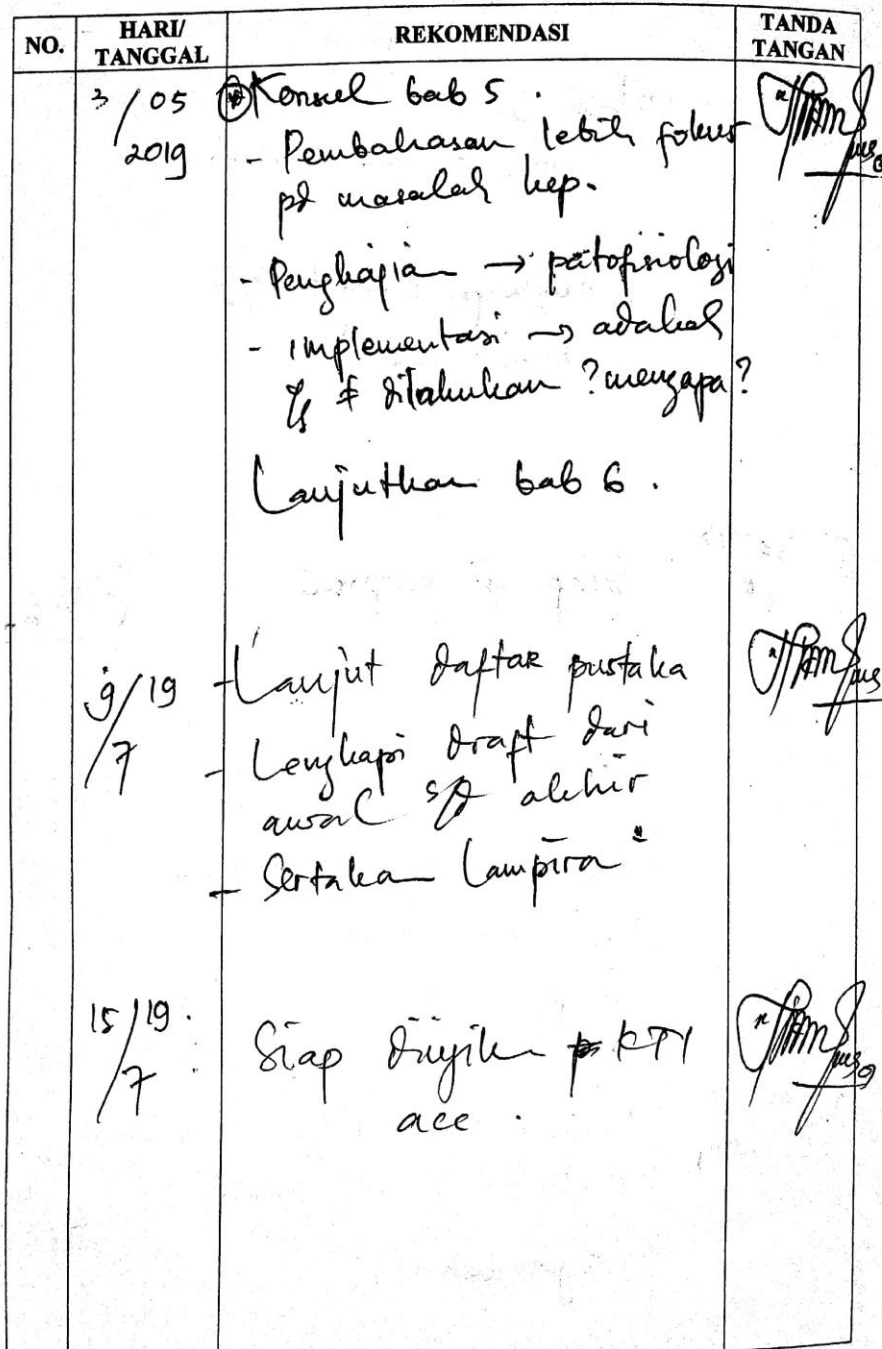 NO. HARI/ TANGGAL REKOMENDASI TANDA TANGAN
3/05 2019
Konsul bab 5.
- Pembahasan lebih fokus
pd masalah kep.
- Pengkajian → patofisiologi
- implementasi → adakah
yg ≠ dilakukan? mengapa?
Lanjutkan bab 6.
9/19
7
- Lanjut daftar pustaka
- Lengkapi draft dari
awal s/d akhir
- Sertakan lampiran"
15/19.
7
Siap diujikan KTI
acc.